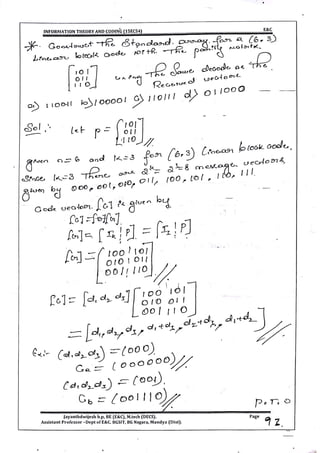 INFORMATION THEORY AND CODING (15EC54) E&C
* Construct The Standard array for a (6, 3)
Linear block code with The parity matrix
[101
011
110] Using The Same decode as The
Received vectors
a) 110011 b) 100001 c) 110111 d) 011000
Sol: Let P = [101
011
110]
given n=6 and k=3 for (6,3) Linear block code.
Since k=3 There are 2^k = 2^3 = 8 message vectors
given by 000, 001, 010, 011, 100, 101, 110, 111.
Code vector [C] is given by
[C] = [d][G]
[G] = [Ik | P] = [I3 | P]
[G] = [100 | 101
010 | 011
001 | 110]
[C] = [d1 d2 d3] [100 101
010 011
001 110]
= [d1, d2, d3, d1+d3, d2+d3, d1+d2]
Ex:- (d1 d2 d3) = (000)
Ca = (000000)
(d1 d2 d3) = (001)
Cb = (001110)
P.T.O
Jayanthdwijesh h p, BE (E&C), M.tech (DECS). Page
Assistant Professor –Dept of E&C, BGSIT, BG Nagara, Mandya (Dist). 92